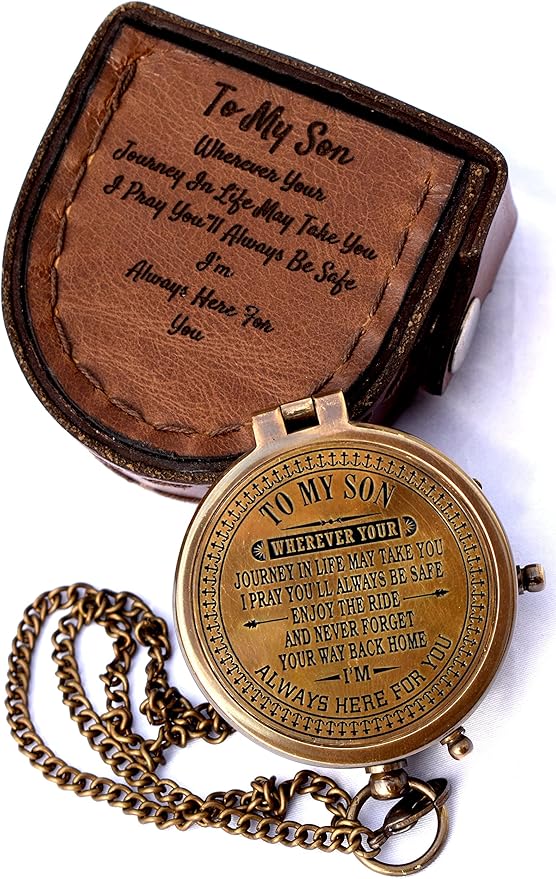 To My Son
Wherever Your
Journey In Life May Take You
I Pray You'll Always Be Safe
I'm
Always Here For
You
TO MY SON
WHEREVER YOUR
JOURNEY IN LIFE MAY TAKE YOU
I PRAY YOU LL ALWAYS BE SAFE
ENJOY THE RIDE
AND NEVER FORGET
YOUR WAY BACK HOME
I'M
ALWAYS HERE FOR YOU